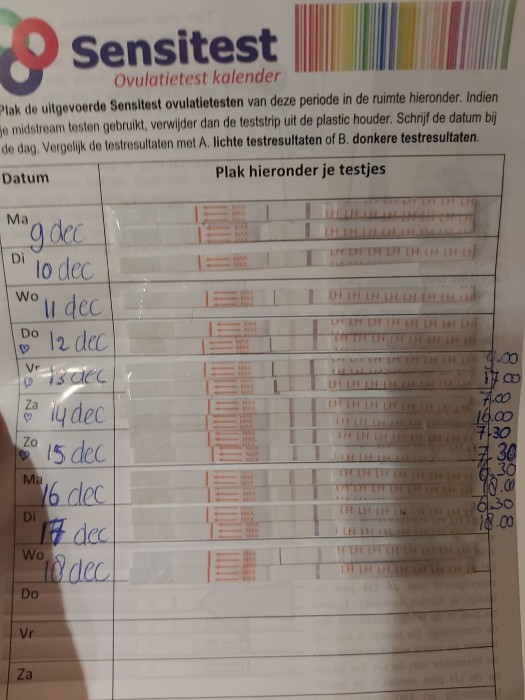 Sensitest
Ovulatietest kalender
Plak de uitgevoerde Sensitest ovulatietesten van deze periode in de ruimte hieronder. Indien
je midstream testen gebruikt, verwijder dan de teststrip uit de plastic houder. Schrijf de datum bij
de dag. Vergelijk de testresultaten met A. lichte testresultaten of B. donkere testresultaten.
Datum Plak hieronder je testjes
Ma 9 dec
LH LH LH LH LH LH LH
Di 10 dec
LH LH LH LH LH LH LH
Wo 11 dec
LH LH LH LH LH LH LH
Do 12 dec
LH LH LH LH LH LH LH
Vr 13 dec
9.00
17.00
Za 14 dec
7.00
16.00
Zo 15 dec
7.30
7.30
Ma 16 dec
6.30
18.00
Di 17 dec
6.30
18.00
Wo 18 dec
LH LH LH LH LH LH LH
Do
Vr
Za